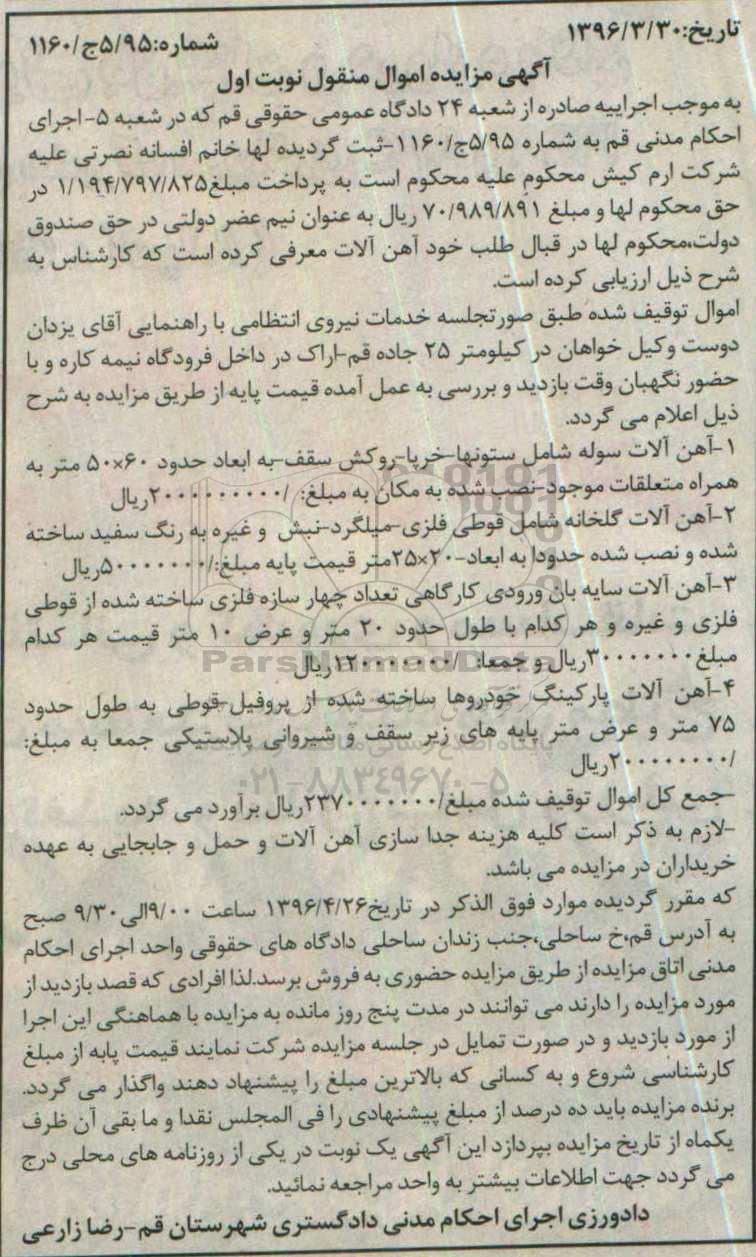 تاریخ:۱۳۹۶/۳/۳۰
شماره:۵/۹۵ج/۱۱۶۰
آگهی مزایده اموال منقول نوبت اول
به موجب اجراییه صادره از شعبه ۲۴ دادگاه عمومی حقوقی قم که در شعبه ۵-اجرای
احکام مدنی قم به شماره ۵/۹۵ج/۱۱۶۰-ثبت گردیده لها خانم افسانه نصرتی علیه
شرکت ارم کیش محکوم علیه محکوم است به پرداخت مبلغ۱/۱۹۴/۷۹۷/۸۲۵ در
حق محکوم لها و مبلغ ۷۰/۹۸۹/۸۹۱ ریال به عنوان نیم عضر دولتی در حق صندوق
دولت،محکوم لها در قبال طلب خود آهن آلات معرفی کرده است که کارشناس به
شرح ذیل ارزیابی کرده است.
اموال توقیف شده طبق صورتجلسه خدمات نیروی انتظامی با راهنمایی آقای یزدان
دوست وکیل خواهان در کیلومتر ۲۵ جاده قم-اراک در داخل فرودگاه نیمه کاره و با
حضور نگهبان وقت بازدید و بررسی به عمل آمده قیمت پایه از طریق مزایده به شرح
ذیل اعلام می گردد.
۱-آهن آلات سوله شامل ستونها-خرپا-روکش سقف-به ابعاد حدود ۶۰×۵۰ متر به
همراه متعلقات موجود-نصب شده به مکان به مبلغ: /۲۰۰۰۰۰۰۰۰۰ریال
۲-آهن آلات گلخانه شامل قوطی فلزی-میلگرد-نبش و غیره به رنگ سفید ساخته
شده و نصب شده حدودا به ابعاد-۲۰×۲۵متر قیمت پایه مبلغ:/۵۰۰۰۰۰۰۰ریال
۳-آهن آلات سایه بان ورودی کارگاهی تعداد چهار سازه فلزی ساخته شده از قوطی
فلزی و غیره و هر کدام با طول حدود ۲۰ متر و عرض ۱۰ متر قیمت هر کدام
مبلغ۳۰۰۰۰۰۰۰ریال و جمعا: /۱۲۰۰۰۰۰۰۰ریال
ParsNamadData
۴-آهن آلات پارکینگ خودروها ساخته شده از پروفیل-قوطی به طول حدود
۷۵ متر و عرض متر پایه های زیر سقف و شیروانی پلاستیکی جمعا به مبلغ:
/۲۰۰۰۰۰۰۰۰ریال
۰۲۱-۸۸۳۴۹۶۷۰-۵
-جمع کل اموال توقیف شده مبلغ/۲۳۷۰۰۰۰۰۰۰ریال برآورد می گردد.
-لازم به ذکر است کلیه هزینه جدا سازی آهن آلات و حمل و جابجایی به عهده
خریداران در مزایده می باشد.
که مقرر گردیده موارد فوق الذکر در تاریخ۱۳۹۶/۴/۲۶ ساعت ۹/۰۰الی۹/۳۰ صبح
به آدرس قم،خ ساحلی،جنب زندان ساحلی دادگاه های حقوقی واحد اجرای احکام
مدنی اتاق مزایده از طریق مزایده حضوری به فروش برسد.لذا افرادی که قصد بازدید از
مورد مزایده را دارند می توانند در مدت پنج روز مانده به مزایده با هماهنگی این اجرا
از مورد بازدید و در صورت تمایل در جلسه مزایده شرکت نمایند قیمت پایه از مبلغ
کارشناسی شروع و به کسانی که بالاترین مبلغ را پیشنهاد دهند واگذار می گردد.
برنده مزایده باید ده درصد از مبلغ پیشنهادی را فی المجلس نقدا و ما بقی آن ظرف
یکماه از تاریخ مزایده بپردازد این آگهی یک نوبت در یکی از روزنامه های محلی درج
می گردد جهت اطلاعات بیشتر به واحد مراجعه نمائید.
دادورزی اجرای احکام مدنی دادگستری شهرستان قم-رضا زارعی